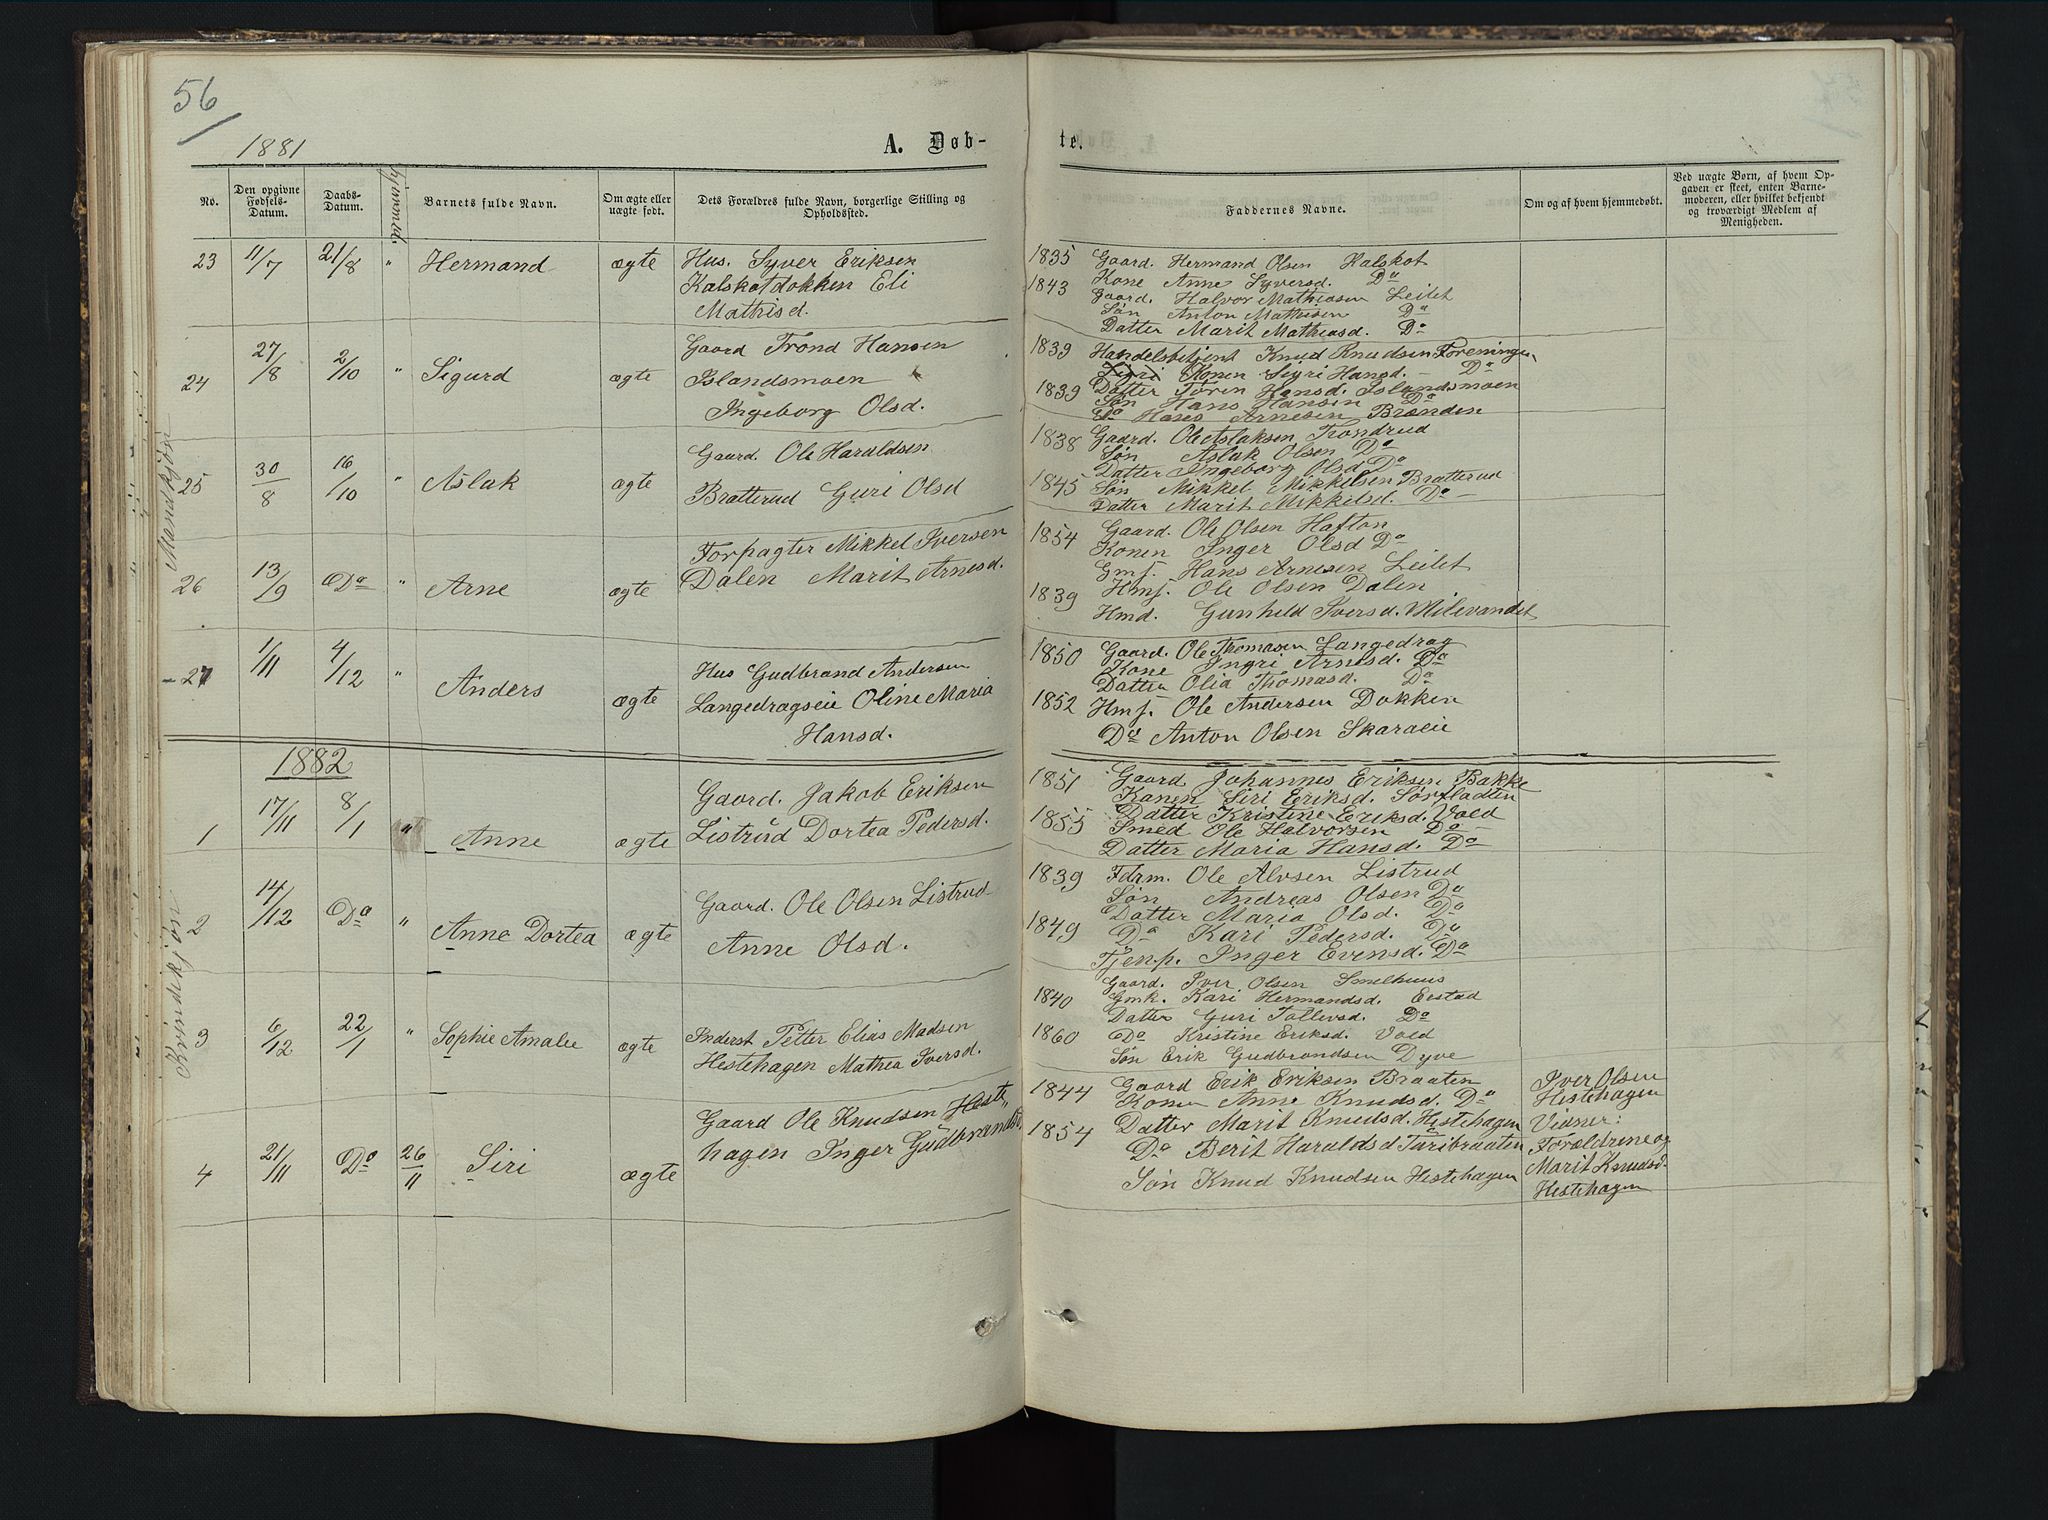 56
1881
A. Døb-
te.
No.
Den opgivne Fødsels-Datum.
Daabs-Datum.
hjemmed.
Barnets fulde Navn.
Om ægte eller uægte født.
Dets Forældres fulde Navn, borgerlige Stilling og Opholdssted.
Faddernes Navne.
Om og af hvem hjemmedøbt.
Ved uægte Børn, af hvem Opgaven er skeet, enten Barnemoderen, eller hvilket bekjendt og troværdigt Medlem af Menigheden.
Mandkjøn
23 11/7 21/8 " Hermand ægte
Hus. Syver Eriksen
Kalskotdokken Eli
Mathisd.
1835
1843
Gaard. Hermand Olsen Kalskot
Kone Anne Syversd. Do
Gaard. Halvor Mathiasen Leilet
Søn Anton Mathisen Do
Datter Marit Mathiasd. Do
24 27/8 2/10 " Sigurd ægte
Gaard Trond Hansen
Islandsmoen
Ingeborg Olsd.
1839
1839
Handelsbetjent Knud Knudsen Foreningen
Sigri Konen Sigri Hansd. - Do
Datter Toren Hansd. Islandsmoen
Søn Hans Hansen Do
Do Hans Arnesen Brenden
25 30/8 16/10 " Aslak ægte
Gaard. Ole Haraldsen
Bratterud Guri Olsd
1838
1845
Gaard. Ole Aslaksen Trondrud
Søn Aslak Olsen Do
Datter Ingeborg Olsd Do
Søn Mikkel Mikkelsen Bratterud
Datter Marit Mikkelsd. Do
26 13/9 Do " Arne ægte
Forpagter Mikkel Iversen
Dalen Marit Arnesd.
1854
1839
Gaard. Ole Olsen Hafton
Konen Inger Olsd Do
Gmf. Hans Arnesen Leilet
Hmf. Ole Olsen Dalen
Hmd. Gunhild Iversd. Milevandet
27 1/11 4/12 " Anders ægte
Hus Gudbrand Andersen
Langedragseie Oline Maria
Hansd.
1850
1852
Gaard. Ole Thomasen Langedrag
Kone Ingri Arnesd. Do
Datter Olia Thomasd. Do
Hmf. Ole Andersen Dokken
Do Anton Olsen Skaraeie
1882
Kvindekjøn
1 17/11 8/1 " Anne ægte
Gaard. Jakob Eriksen
Listrud Dortea Pedersd.
1851
1855
Gaard Johannes Eriksen Bakke
Konen Siri Eriksd. Sørfladten
Datter Kristine Eriksd. Vold
Smed Ole Halvorsen Do
Datter Maria Hansd. Do
2 14/12 Do " Anne Dortea ægte
Gaard. Ole Olsen Listrud
Anne Olsd.
1839
1849
Fdrm. Ole Alvsen Listrud
Søn Andreas Olsen Do
Datter Maria Olsd. Do
Do Kari Pedersd. Do
Tjenp. Inger Evensd. Do
3 6/12 22/1 " Sophie Amalie ægte
Inderst Petter Elias Madsen
Hestehagen Mathea Iversd.
1840
1860
Gaard. Iver Olsen Smelhuus
Gmk. Kari Hermandsd. Eestad
Datter Guri Tollevsd. Do
Do Kristine Eriksd. Vold
Søn Erik Gudbrandsen Dyve
4 21/11 Do 26/11 Siri ægte
Gaard Ole Knudsen Heste-
hagen Inger Gudbrandsd.
1844
1854
Gaard Erik Eriksen Braaten
Konen Anne Knudsd. Do
Datter Marit Knudsd. Hestehagen
Do Berit Haraldsd Turibraaten
Søn Knud Knudsen Hestehagen
Iver Olsen
Hestehagen
Vidner:
Forældrene og
Marit Knudsd.
Hestehagen